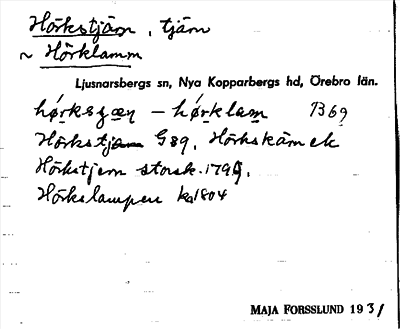 Hörkstjärn, tjärn
~ Hörklamm
Ljusnarsbergs sn, Nya Kopparbergs hd, Örebro län.
hø̣rksʒæṇ – hø̣rklam B69
Hörkstjärn G89. Hörkskärn ek
Hörkstjern storsk. 1799.
Hörkslampen ka 1804
MAJA FORSSLUND 1931